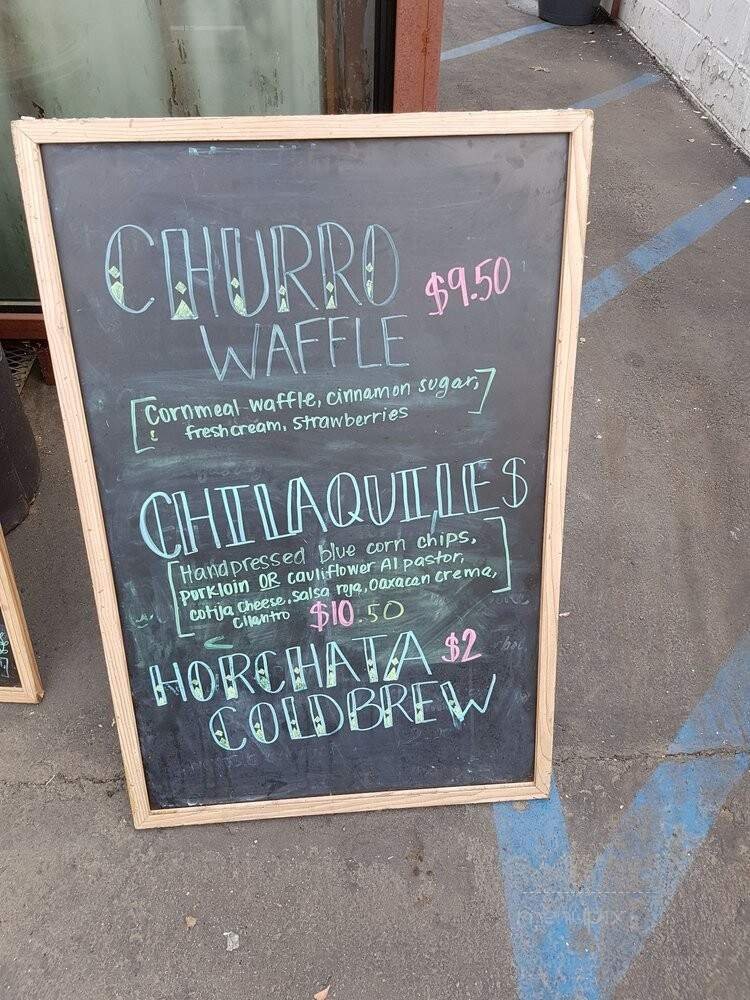 CHURRO $9.50
WAFFLE
[Cornmeal waffle, cinnamon sugar,
fresh cream, strawberries]
CHILAQUILES
[Handpressed blue corn chips,
porkloin OR cauliflower Al pastor,
cotija cheese, salsa roja, oaxacan crema,
cilantro]
$10.50
HORCHATA $2
COLDBREW
menupix